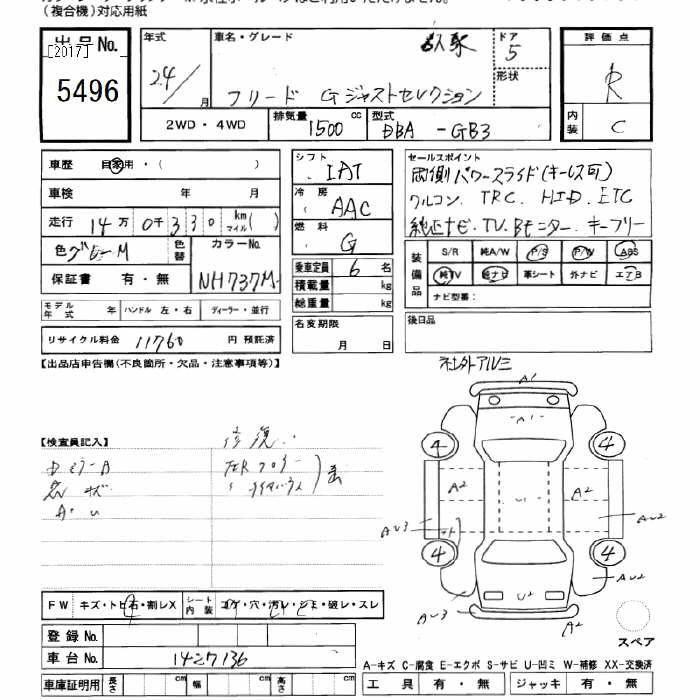 (複合機)対応用紙
出品No.
[2017]
5496
年式
24/
月
車名・グレード
フリード Gジャストセレクション
ドア
5
形状
2WD・4WD
排気量
1500 cc
型式
DBA -GB3
評価点
R
内装
C
車歴 自家用・( )
車検 年 月
走行 14万 0千330 km マイル( )
色 グレーM
色替
カラーNo.
NH737M
保証書 有・無
モデル年式 年 ハンドル 左・右 ディーラー・並行
リサイクル料金 11760 円 預託済
シフト
IAT
冷房
AAC
燃料
G
乗車定員 6 名
積載量 kg
総重量 kg
名変期限
月 日
セールスポイント
両側パワースライド(キーレス可)
クルコン. TRC. HID. ETC
純正ナビ. TV. Bモニター. キーフリー
装備品
S/R 純A/W P/S P/W ABS
純TV 純ナビ 革シート 外ナビ エアB
ナビ型番:
後日品
【出品店申告欄(不良箇所・欠品・注意事項等)】
社外アルミ
【検査員記入】
修復
A1
A1
4 4
A2 A2
U1
AU3 AU2
4 4
AU2
U2
AU3
A2
スペア
FW キズ・トビ石・割レX
シート内装 コゲ・穴・汚レ・シミ・破レ・スレ
登録No.
車台No. 1427136
車庫証明用 長さ cm 幅 cm 高さ cm
A-キズ C-腐食 E-エクボ S-サビ U-凹ミ W-補修 XX-交換済
工具 有・無 ジャッキ 有・無